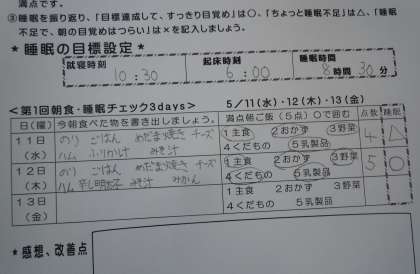 満点です。
③睡眠を振り返り、「目標達成して、すっきり目覚め」は○、「ちょっと睡眠不足」は△、「睡眠
不足で、朝の目覚めはつらい」は×を記入しましょう。
*睡眠の目標設定*
就寝時刻 起床時刻 睡眠時間
10:30 6:00 8時間30分
<第1回朝食・睡眠チェック3days> 5/11(水)・12(木)・13(金)
日(曜) 今朝食べた物を書き出しましょう。 満点朝ご飯(5点)○で囲む 点数 睡眠
11日 のり ごはん めだま焼き チーズ 1主食 2おかず 3野菜 4 △
(水) ハム ふりかけ みそ汁 4くだもの 5乳製品
12日 のり ごはん めだま焼き チーズ 1主食 2おかず 3野菜 5 ○
(木) ハム 辛し明太子 みそ汁 みかん 4くだもの 5乳製品
13日 1主食 2おかず 3野菜
(金) 4くだもの 5乳製品
*感想、改善点